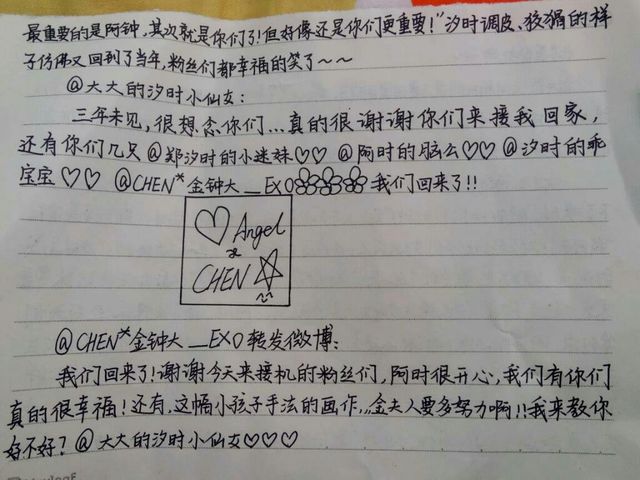 最重要的是阿钟,其次就是你们了!但好像还是你们更重要!"汐时调皮、狡猾的样
子仿佛又回到了当年,粉丝们都幸福的笑了~~
@大大的汐时小仙女:
三年未见,很想念你们...真的很谢谢你们来接我回家,
还有你们几只@郑汐时的小迷妹♡♡ @阿时的脑么♡♡ @汐时的乖
宝宝♡♡ @CHEN*金钟大__EXO我们回来了!!
♡Angel
&
CHEN☆
~~
@CHEN*金钟大__EXO转发微博:
我们回来了!谢谢今天来接机的粉丝们,阿时很开心,我们有你们
真的很幸福!还有,这幅小孩子手法的画作,,,金夫人要多努力啊!!我来教你
好不好?@大大的汐时小仙女♡♡♡